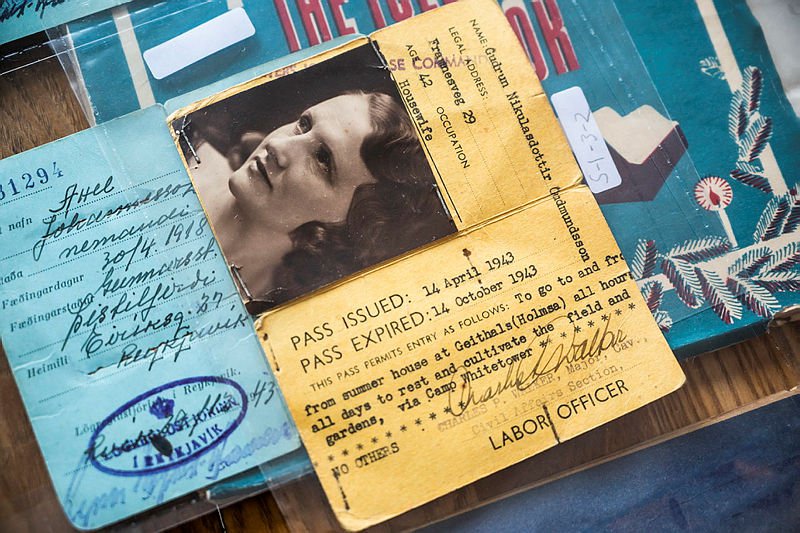 THE ICE
BOOK
SE COMMAN
NAME: Gudrun Nikulasdottir Gudmundsson
LEGAL ADDRESS:
Framnesveg 29
AGE 42 OCCUPATION
Housewife
PASS ISSUED: 14 April 1943
PASS EXPIRED: 14 October 1943
THIS PASS PERMITS ENTRY AS FOLLOWS: To go to and fro
from summer house at Geithals(Holmsa) all hours
all days to rest and cultivate the field and
gardens, via Camp Whitetower * * * * * *
NO OTHERS
CHARLES P. WALKER, Major, Cav.,
Civil Affairs Section,
LABOR OFFICER
S-1-3-2
31294
nafn Axel
Jóhannesson
nemandi
Fæðingardagur 30/4 1918
Fæðingarstaður Gunnarsst
Heimili Eiríksg. 37
Reykjavík
Lögreglustjórinn í Reykjavík,
43
LÖGREGLUSTJÓRINN
Í REYKJAVÍK